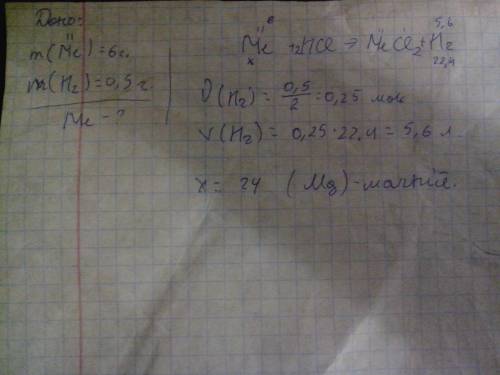 Дано:
m(Me)=6г.
m(H₂)=0,5г.
Me - ?
6 5,6
Me +2HCl → MeCl₂+H₂
x 22,4
ν(H₂) = 0,5/2 = 0,25 моль
V(H₂) = 0,25·22,4 = 5,6 л
x = 24 (Mg) - магній.